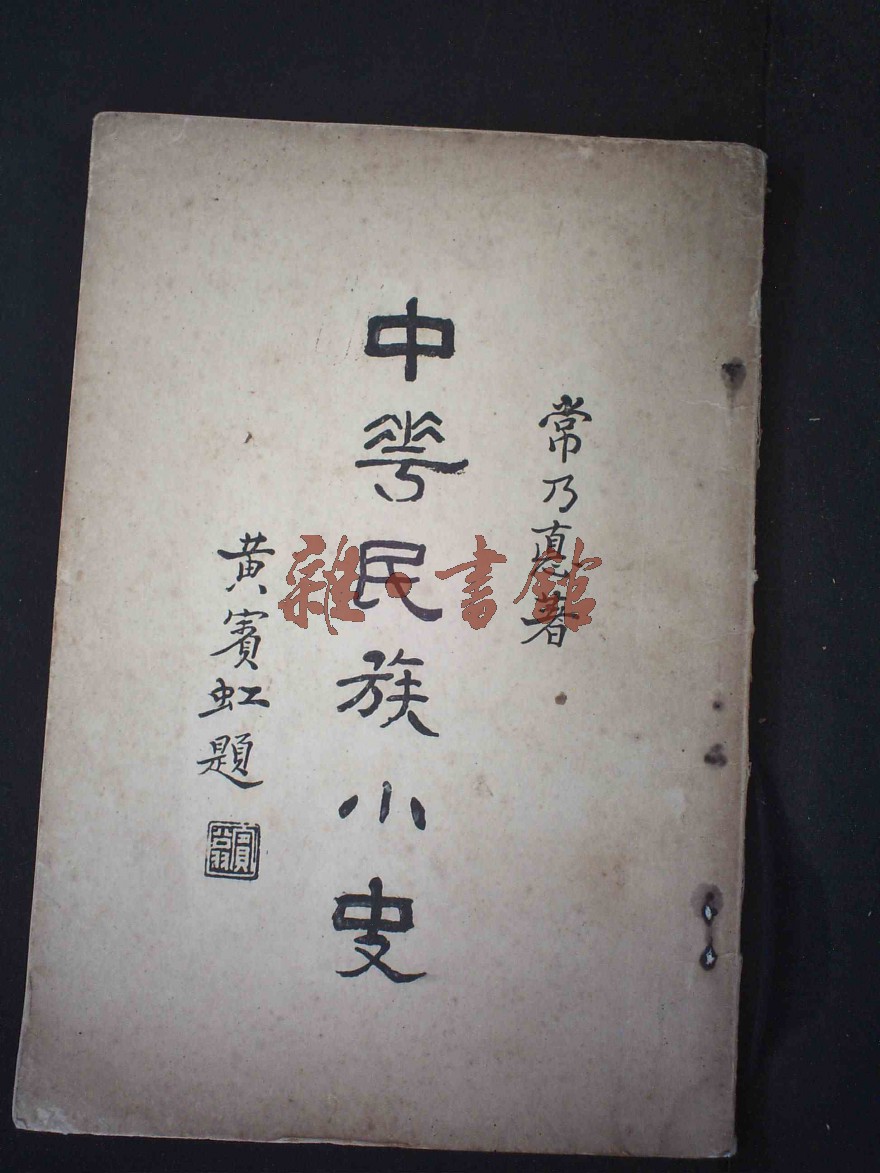 常乃悳著
中華民族小史
黄賓虹題
雜·書館